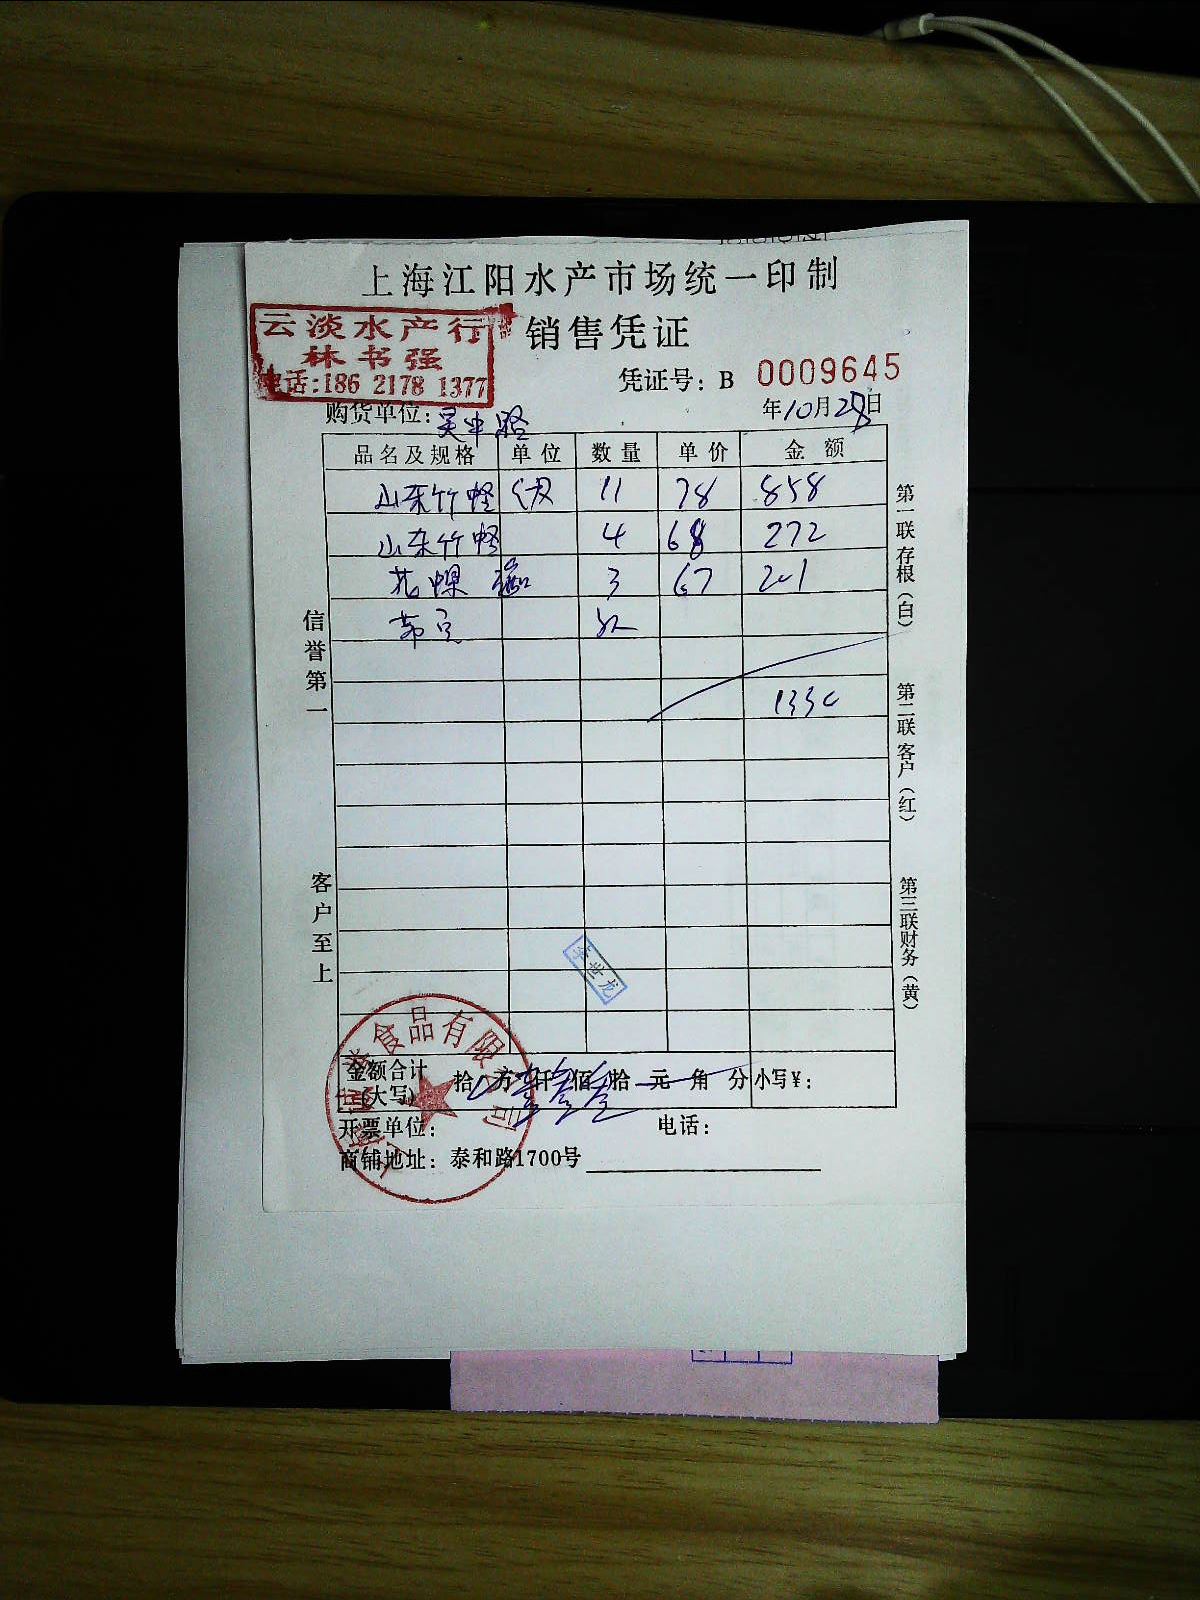 上海江阳水产市场统一印制
销售凭证
云淡水产行
林书强
电话:186 2178 1377
凭证号: B 0009645
购货单位: 吴中路
年10月28日
品名及规格 单位 数量 单价 金额
山东竹蛏 11 78 858
山东竹蛏 4 68 272
花螺 3 67 201
1330
信誉第一
客户至上
第一联存根(白)
第二联客户(红)
第三联财务(黄)
李世龙
食品有限公司
金额合计(大写) 拾 万 仟 佰 拾 元 角 分 小写¥:
开票单位: 电话:
商铺地址: 泰和路1700号